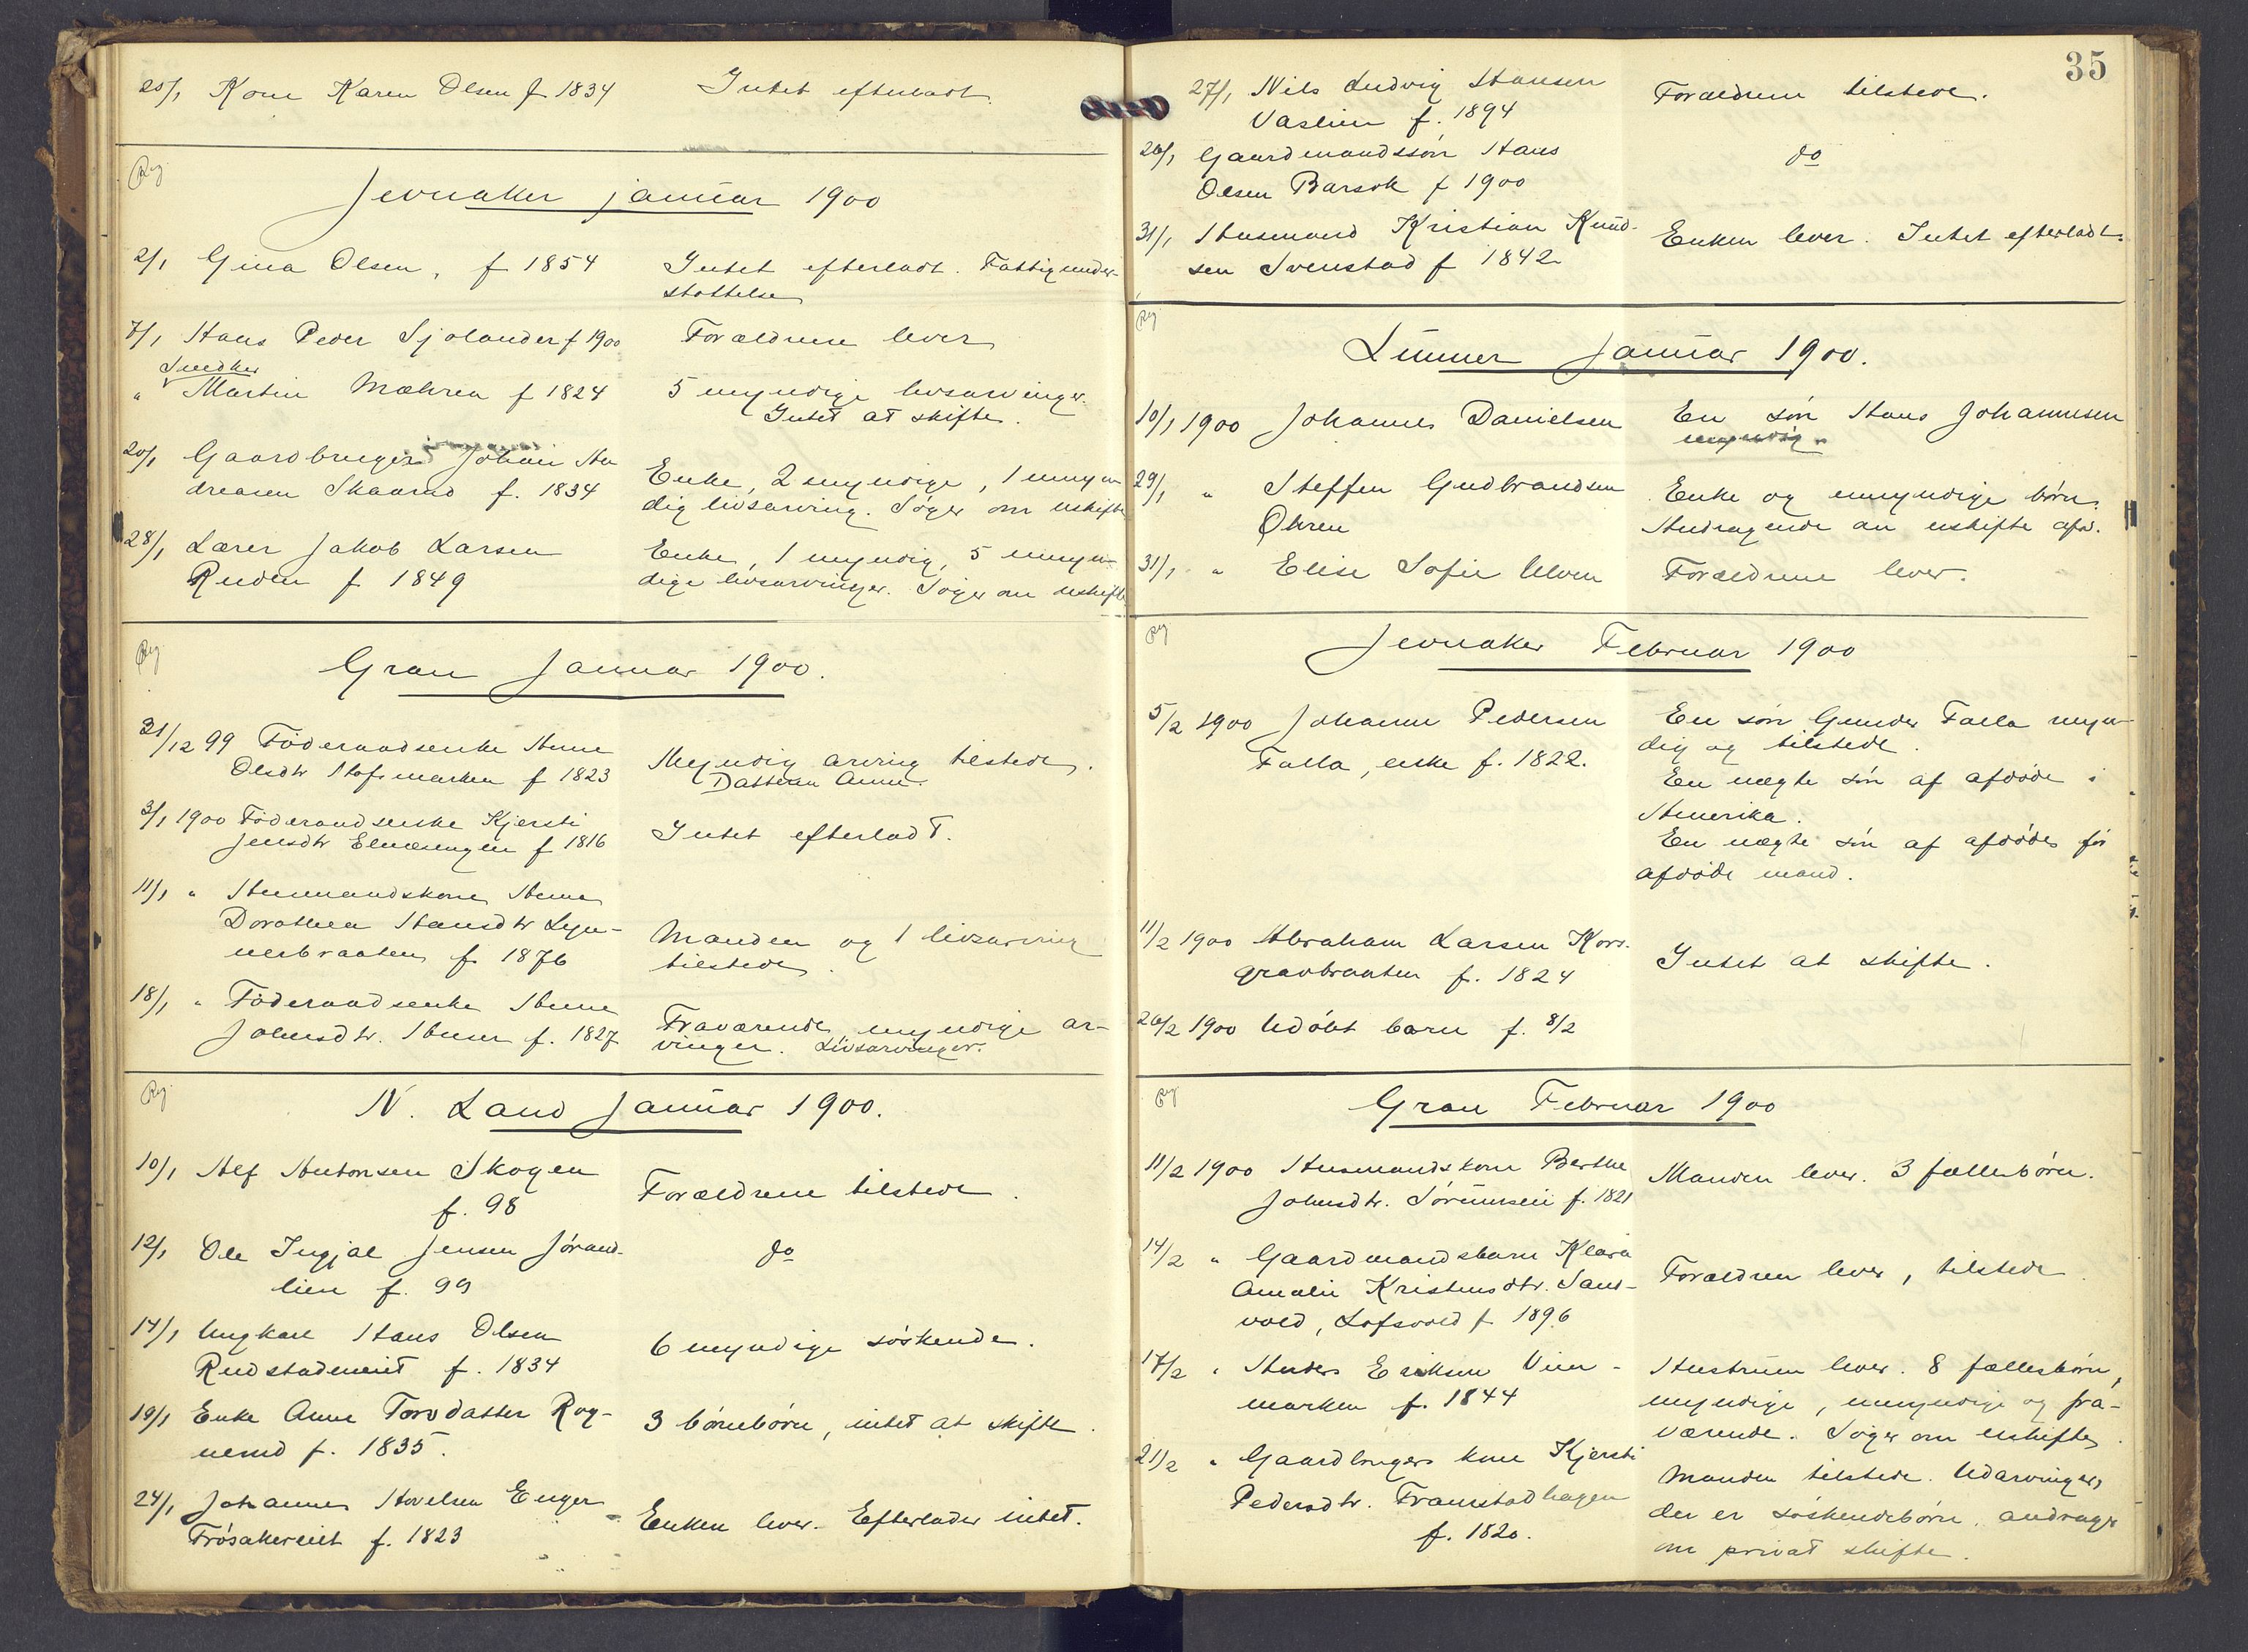 25/1 Kone Karen Olsen f 1834 Intet efterladt.
Reg
Jevnaker januar 1900
2/1 Gina Olsen, f 1854 Intet efterladt. Fattigunder-
støttelse
7/1 Hans Peder Sjolander f 1900 Forældrene lever
Smedker
" Martin Mæhren f 1824 5 myndige livsarvinger.
Intet at skifte.
20/1 Gaardbruger Johan An
dreasen Skaarud f. 1834 Enke, 2 myndige, 1 umyn
dig livsarving. Søger om uskifte
28/1 Lærer Jakob Larsen
Ruden f 1849 Enke, 1 myndig, 5 umyn-
dige livsarvinger. Søger om uskifte
Reg
Gran Januar 1900.
31/12 99 Föderaadsenke Anne
Olsdtr Hofsmarken f 1823 Myndig arving tilstede.
Datteren Anne.
3/1 1900 Föderaadsenke Kjersti
Jensdtr f 1816 Intet efterladt.
11/1 " Husmandskone Anne
Dorothea Hansdtr Lyn-
nesbraaten f. 1876 Manden og 1 livsarving
tilstede.
18/1 " Föderaadsenke Anne
Johnsdtr. f. 1827 Fraværende myndige ar-
vinger. Livsarvinger.
Reg
N. Land Januar 1900.
10/1 Alf Antonsen Skogen
f. 98 Forældrene tilstede.
12/1 Ole Ingjal Jensen Jørand-
lien f. 99 do
14/1 Ungkarl Hans Olsen
Rudstadeneiet f. 1834 6 myndige søskende.
19/1 Enke Anne Torsdatter Rog-
nerud f. 1835. 3 børnebørn, intet at skifte.
24/1 Johannes Hovelsen Enger
Frøsakereiet f. 1823 Enken lever. Efterlader intet.
35
27/1 Nils Ludvig Hansen
Vaslien f. 1894 Forældrene tilstede.
26/1 Gaardmandssøn Hans
Olsen Barsok f 1900 do
31/1 Husmand Kristian Knud-
sen Svenstad f 1842 Enken lever. Intet efterladt.
Reg
Lunner Januar 1900.
10/1 1900 Johannes Danielsen En søn Hans Johannesen
myndig.
29/1 " Steffen Gudbrandsen
Øhren Enke og umyndige børn.
Andragende om uskifte afs.
31/1 " Elise Sofie Ulven Forældrene lever.
Reg
Jevnaker Februar 1900
5/2 1900 Johanne Pedersen
Falla, enke f. 1822. En søn Gunder Falla myn-
dig og tilstede.
En uægte søn af afdøde i
Amerika.
En uægte søn af afdødes før
afdøde mand.
11/2 1900 Abraham Larsen Kors-
gravbraaten f. 1824 Intet at skifte.
26/2 1900 Udöbt barn f. 8/2
Reg
Gran Februar 1900
11/2 1900 Husmandskone Berthe
Johnsdtr. f. 1821 Manden lever. 3 fællesbørn.
14/2 " Gaardmandsbarn Klara
Amalie Kristensdtr. Sand-
vold, Lofsvold f 1896 Forældren lever, tilstede.
17/2 " Anders Eriksen Vien-
marken f. 1844 Hustruen lever. 8 fællesbørn,
myndige, umyndige og fra-
værende. Søger om uskifte.
21/2 " Gaardbrugers kone Kjersti
Pedersdtr. Framstadhagen
f. 1820. Manden tilstede. Udarvinger,
der er søskendebørn, andrager
om privat skifte.